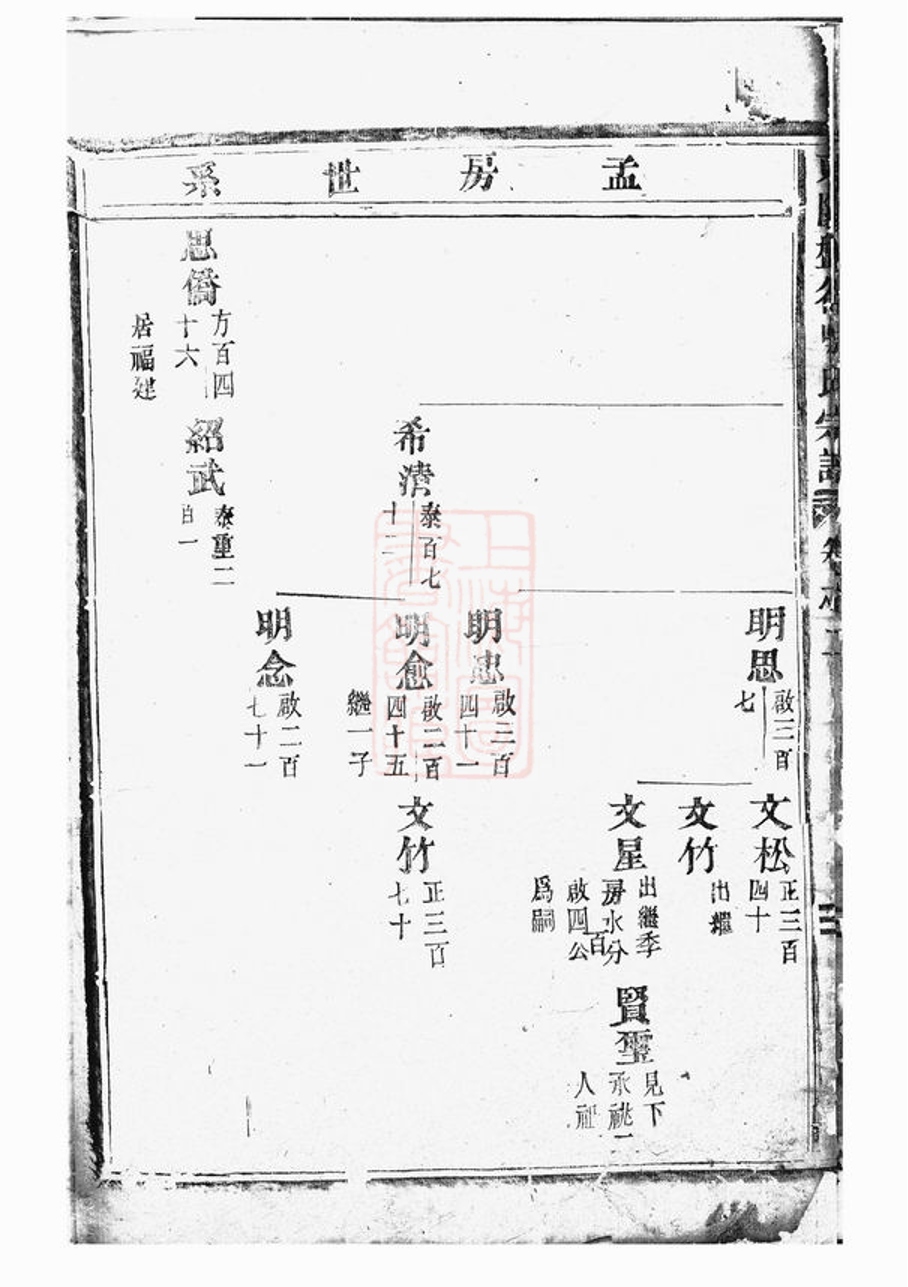 孟房世系
明思
啟三百
七
文松
正三百
四十
文竹
出繼
文星
出繼季
房水分
啟四百公
為嗣
賢璽
見下
承祧二
人祉
明忠
啟三百
四十一
希濤
泰百七
十二
明愈
啟二百
四十五
繼一子
文竹
正三百
七十
明念
啟二百
七十一
思僑
方百四
十六
居福建
紹武
泰重二
百一